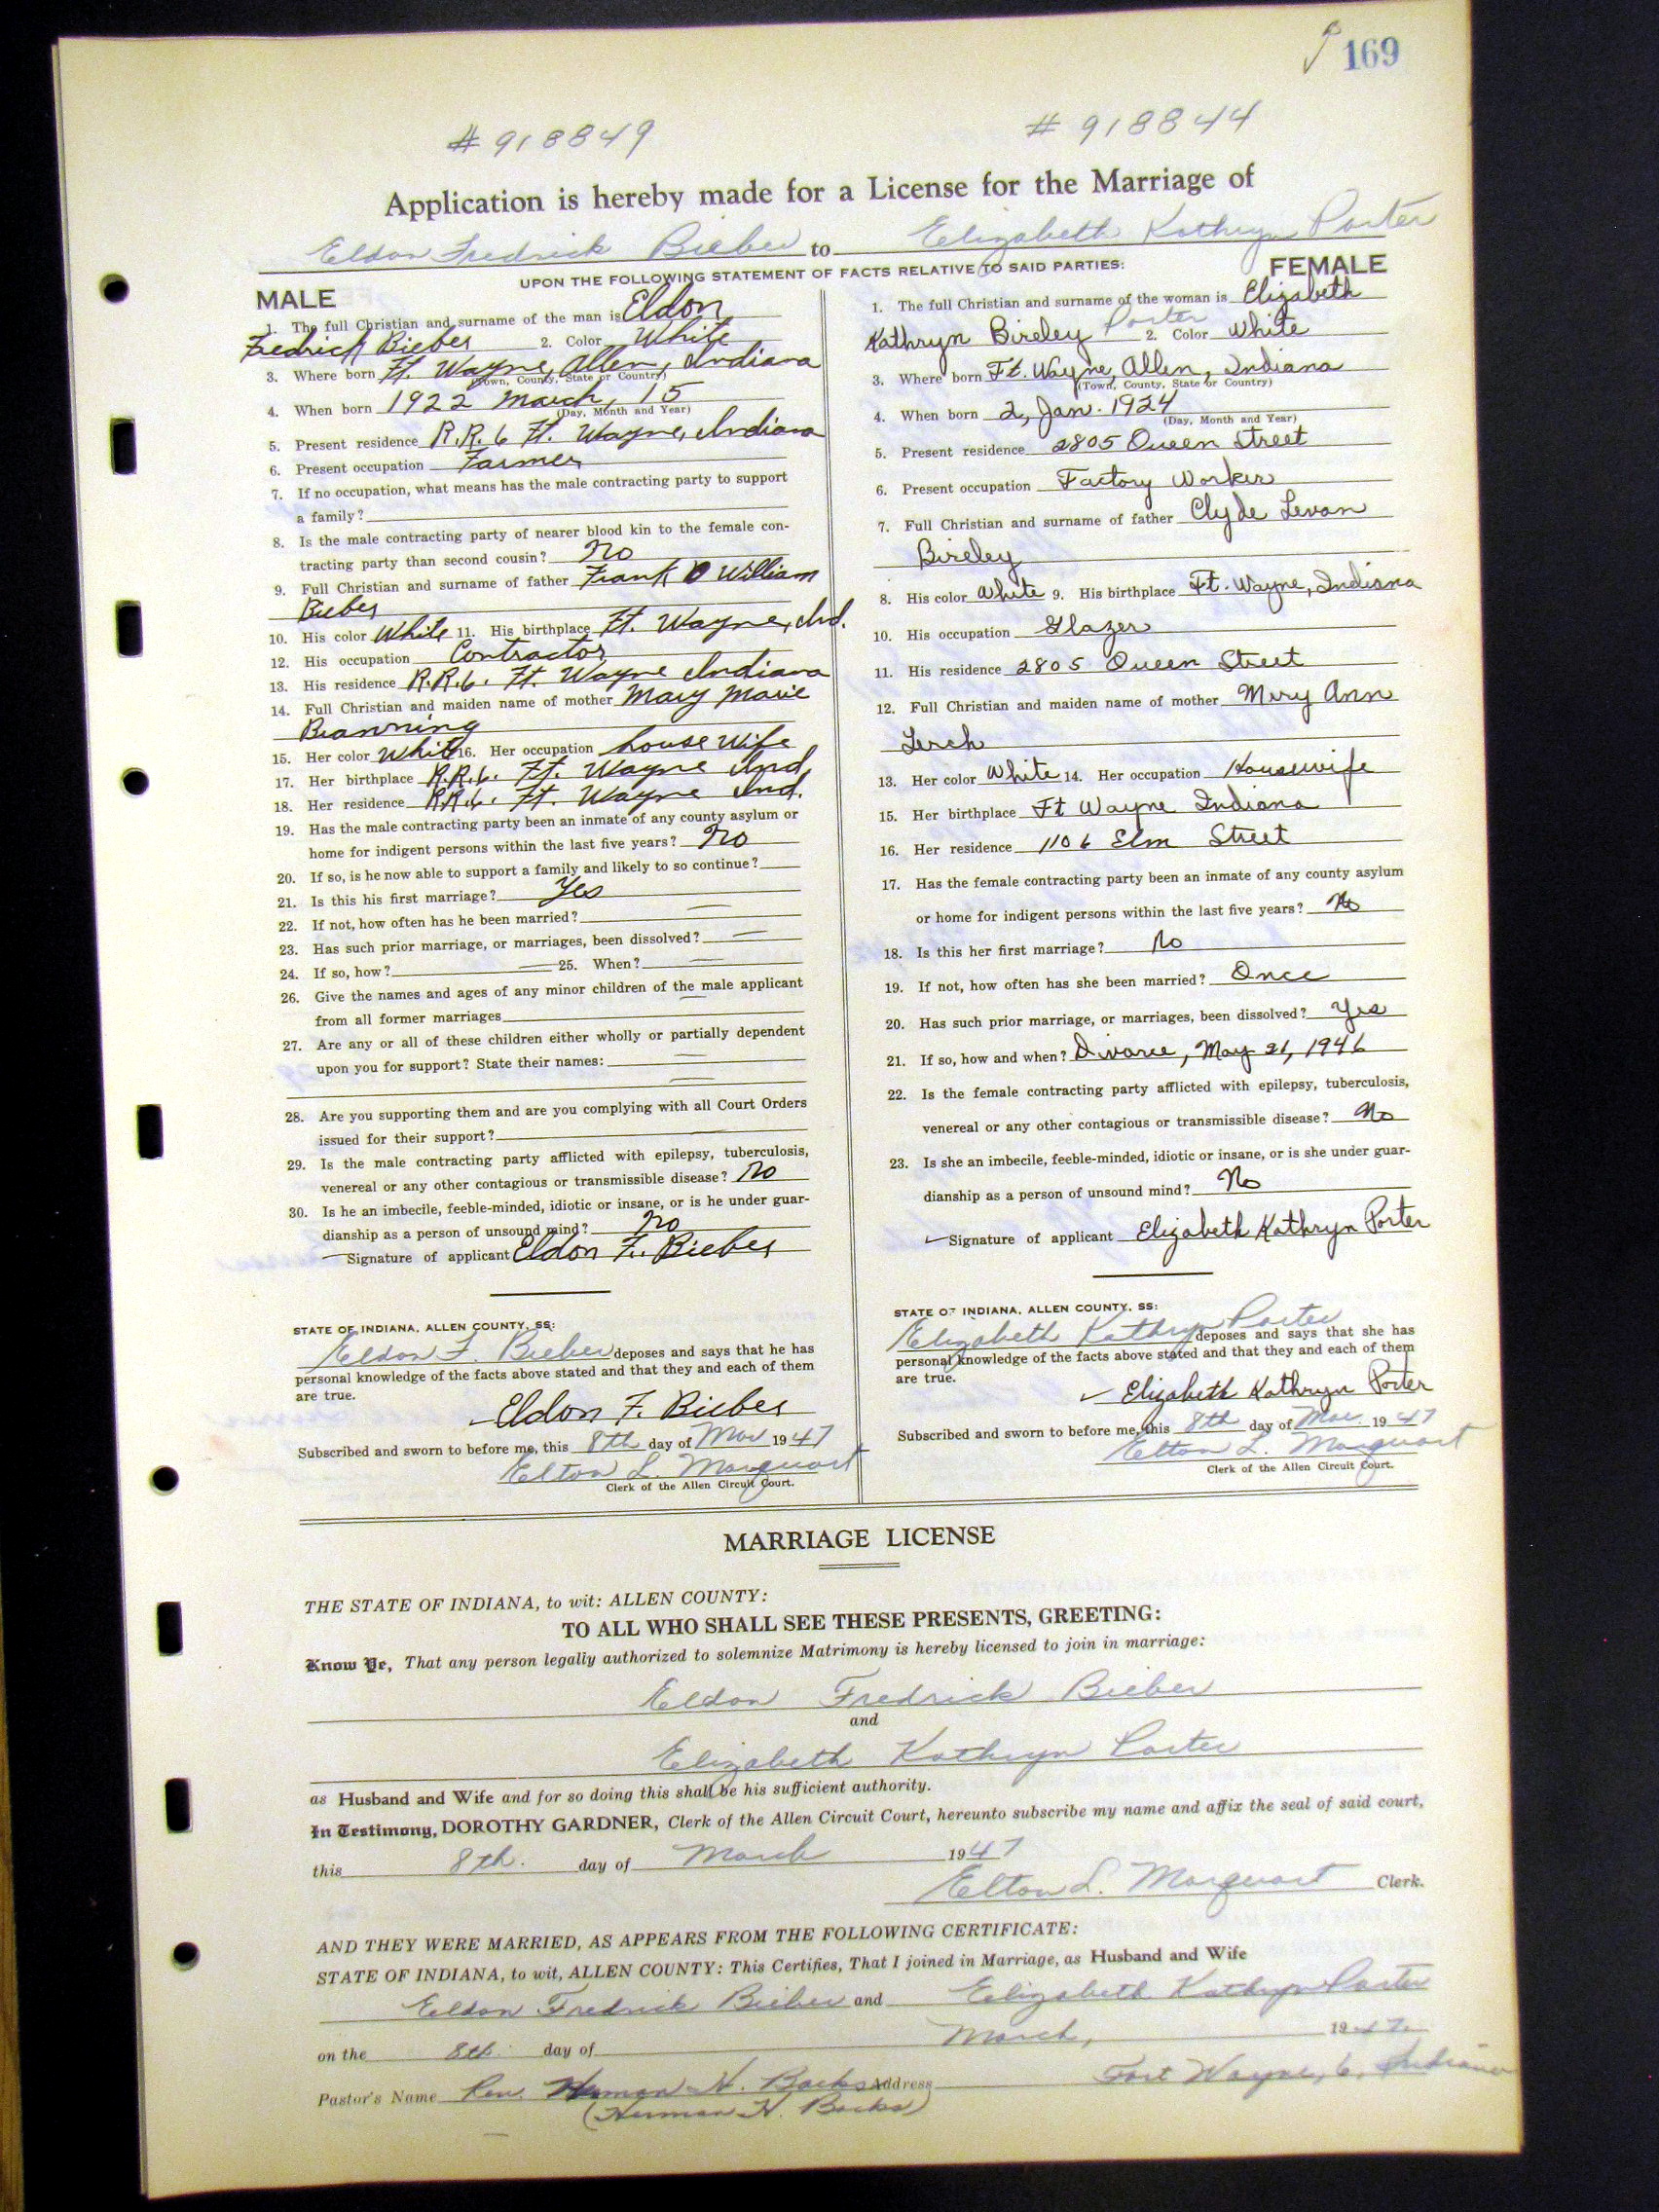 169
# 918849 # 918844
Application is hereby made for a License for the Marriage of
Eldon Fredrick Bieber to Elizabeth Kathryn Porter
UPON THE FOLLOWING STATEMENT OF FACTS RELATIVE TO SAID PARTIES:
MALE
1. The full Christian and surname of the man is Eldon
Fredrick Bieber 2. Color White
3. Where born Ft. Wayne, Allen, Indiana
(Town, County, State or Country)
4. When born 1922 March, 15
(Day, Month and Year)
5. Present residence R.R. 6 Ft. Wayne, Indiana
6. Present occupation Farmer
7. If no occupation, what means has the male contracting party to support
a family?
8. Is the male contracting party of nearer blood kin to the female con-
tracting party than second cousin? No
9. Full Christian and surname of father Frank William
Bieber
10. His color White 11. His birthplace Ft. Wayne, Ind.
12. His occupation Contractor
13. His residence R.R.6. Ft. Wayne Indiana
14. Full Christian and maiden name of mother Mary Marie
Branning
15. Her color White 16. Her occupation house wife
17. Her birthplace R.R.6. Ft. Wayne Ind.
18. Her residence R.R.6. Ft. Wayne Ind.
19. Has the male contracting party been an inmate of any county asylum or
home for indigent persons within the last five years? No
20. If so, is he now able to support a family and likely to so continue?
21. Is this his first marriage? Yes
22. If not, how often has he been married? —
23. Has such prior marriage, or marriages, been dissolved? —
24. If so, how? — 25. When? —
26. Give the names and ages of any minor children of the male applicant
from all former marriages —
27. Are any or all of these children either wholly or partially dependent
upon you for support? State their names: —
—
28. Are you supporting them and are you complying with all Court Orders
issued for their support?
29. Is the male contracting party afflicted with epilepsy, tuberculosis,
venereal or any other contagious or transmissible disease? No
30. Is he an imbecile, feeble-minded, idiotic or insane, or is he under guar-
dianship as a person of unsound mind? No
Signature of applicant Eldon F. Bieber
STATE OF INDIANA, ALLEN COUNTY, SS:
Eldon F. Bieber deposes and says that he has
personal knowledge of the facts above stated and that they and each of them
are true.
Eldon F. Bieber
Subscribed and sworn to before me, this 8th day of Mar 1947
Elton L. Marquart
Clerk of the Allen Circuit Court.
FEMALE
1. The full Christian and surname of the woman is Elizabeth
Kathryn Bireley Porter 2. Color White
3. Where born Ft. Wayne, Allen, Indiana
(Town, County, State or Country)
4. When born 2, Jan. 1924
(Day, Month and Year)
5. Present residence 2805 Queen Street
6. Present occupation Factory Worker
7. Full Christian and surname of father Clyde Levan
Bireley
8. His color White 9. His birthplace Ft. Wayne, Indiana
10. His occupation Glazer
11. His residence 2805 Queen Street
12. Full Christian and maiden name of mother Mary Ann
Lerch
13. Her color White 14. Her occupation Housewife
15. Her birthplace Ft Wayne Indiana
16. Her residence 1106 Elm Street
17. Has the female contracting party been an inmate of any county asylum
or home for indigent persons within the last five years? No
18. Is this her first marriage? No
19. If not, how often has she been married? Once
20. Has such prior marriage, or marriages, been dissolved? Yes
21. If so, how and when? Divorce, May 21, 1946
22. Is the female contracting party afflicted with epilepsy, tuberculosis,
venereal or any other contagious or transmissible disease? No
23. Is she an imbecile, feeble-minded, idiotic or insane, or is she under guar-
dianship as a person of unsound mind? No
Signature of applicant Elizabeth Kathryn Porter
STATE OF INDIANA, ALLEN COUNTY, SS:
Elizabeth Kathryn Porter deposes and says that she has
personal knowledge of the facts above stated and that they and each of them
are true.
Elizabeth Kathryn Porter
Subscribed and sworn to before me, this 8th day of Mar. 1947
Elton L. Marquart
Clerk of the Allen Circuit Court.
MARRIAGE LICENSE
THE STATE OF INDIANA, to wit: ALLEN COUNTY:
TO ALL WHO SHALL SEE THESE PRESENTS, GREETING:
Know Ye, That any person legally authorized to solemnize Matrimony is hereby licensed to join in marriage:
Eldon Fredrick Bieber
and
Elizabeth Kathryn Porter
as Husband and Wife and for so doing this shall be his sufficient authority.
In Testimony, DOROTHY GARDNER, Clerk of the Allen Circuit Court, hereunto subscribe my name and affix the seal of said court,
this 8th. day of March 1947
Elton L. Marquart Clerk.
AND THEY WERE MARRIED, AS APPEARS FROM THE FOLLOWING CERTIFICATE:
STATE OF INDIANA, to wit, ALLEN COUNTY: This Certifies, That I joined in Marriage, as Husband and Wife
Eldon Fredrick Bieber and Elizabeth Kathryn Porter
on the 8th day of March, 1947
Pastor's Name Rev. Herman H. Backs Address Fort Wayne, 6, Indiana
(Herman H. Backs)